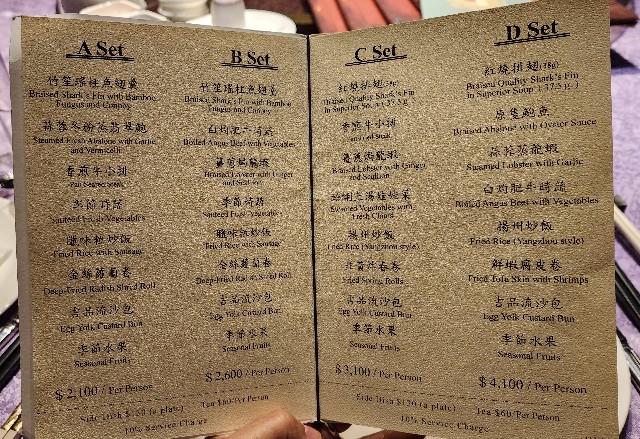 A Set
竹笙瑤柱魚翅羹
Braised Shark's Fin with Bamboo
Fungus and Conpoy
Steamed Fresh Abalone with Garlic
and Vermicelli
香煎牛小排
Pan Seared Steak
季節時蔬
Sauteed Fresh Vegetables
臘味 炒飯
Fried Rice with Sausage
金絲蘿蔔卷
Deep-Fried Radish Shred Roll
吉品流沙包
Egg Yolk Custard Bun
季節水果
Seasonal Fruits
$ 2,100 / Per Person
B Set
竹笙瑤柱魚翅羹
Braised Shark's Fin with Bamboo
Fungus and Conpoy
白灼肥牛時蔬
Boiled Angus Beef with Vegetables
薑蔥焗龍蝦
Braised Lobster with Ginger
and Scallion
季節時蔬
Sauteed Fresh Vegetables
臘味 炒飯
Fried Rice with Sausage
金絲蘿蔔卷
Deep-Fried Radish Shred Roll
吉品流沙包
Egg Yolk Custard Bun
季節水果
Seasonal Fruits
$ 2,600 / Per Person
Side Dish $150 (a plate) Tea $60/Per Person
10% Service Charge
C Set
紅燒排翅
Braised Quality Shark's Fin
in Superior Soup ( 37.5 g )
香煎牛小排
Pan Seared Steak
薑蔥焗龍蝦
Braised Lobster with Ginger
and Scallion
蛤蜊上湯娃娃菜
Steamed Vegetables with
Fresh Clams
揚州炒飯
Fried Rice (Yangzhou style)
炸春卷
Fried Spring Rolls
吉品流沙包
Egg Yolk Custard Bun
季節水果
Seasonal Fruits
$ 3,100 / Per Person
D Set
紅燒排翅
Braised Quality Shark's Fin
in Superior Soup ( 37.5 g )
原隻鮑魚
Braised Abalone with Oyster Sauce
蒜蓉蒸龍蝦
Steamed Lobster with Garlic
白灼肥牛時蔬
Boiled Angus Beef with Vegetables
揚州炒飯
Fried Rice (Yangzhou style)
鮮蝦腐皮卷
Fried Tofu Skin with Shrimps
吉品流沙包
Egg Yolk Custard Bun
季節水果
Seasonal Fruits
$ 4,100 / Per Person
Side Dish $150 (a plate) Tea $60/Per Person
10% Service Charge